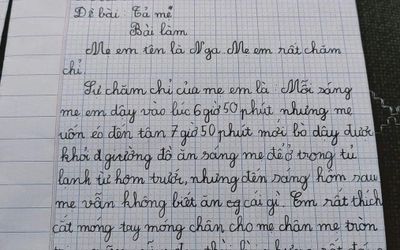 Đề bài: Tả mẹ
Bài làm
Mẹ em tên là Nga Mẹ em rất chăm
chỉ.
Sự chăm chỉ của mẹ em là: Mỗi sáng
mẹ em dậy vào lúc 6 giờ 50 phút nhưng mẹ
uốn éo đến tận 7 giờ 50 phút mới bò dậy được
khỏi giường đồ ăn sáng mẹ để ở trong tủ
lạnh từ hôm trước, nhưng đến sáng hôm sau
mẹ vẫn không biết ăn cái gì. Em rất thích
cắt móng tay móng chân cho mẹ chân mẹ tròn